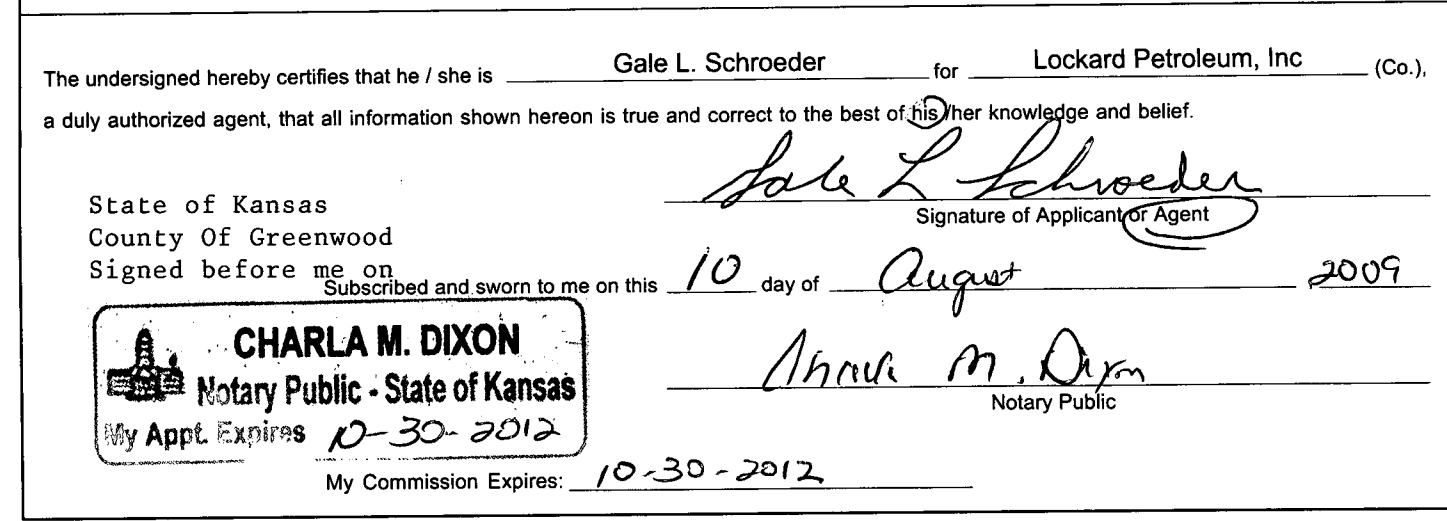 The undersigned hereby certifies that he / she is Gale L. Schroeder for Lockard Petroleum, Inc (Co.),
a duly authorized agent, that all information shown hereon is true and correct to the best of his/her knowledge and belief.
Gale L Schroeder
State of Kansas
Signature of Applicant or Agent
County Of Greenwood
Signed before me on
Subscribed and sworn to me on this 10 day of August 2009
CHARLA M. DIXON
Notary Public - State of Kansas
My Appt. Expires 10-30-2012
Charla M. Dixon
Notary Public
My Commission Expires: 10-30-2012